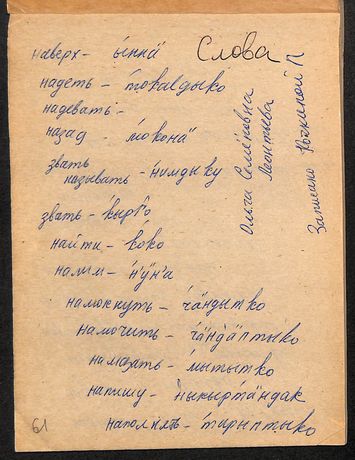 Слова
наверх – ы́ннӓ
надеть – то́калдыко
надевать –
назад – мо́конӓ
звать
называть – ни́мдыку
звать – кыр
найти – ко́ко
налим –
намокнуть – чӓндытко
намочить – чӓндӓптыко
намазать – мы́тытко
напишу – ныкыртӓндак
наполнять – та́рыптыко
Ольга Семёновна
Леонтьева
Записано
61